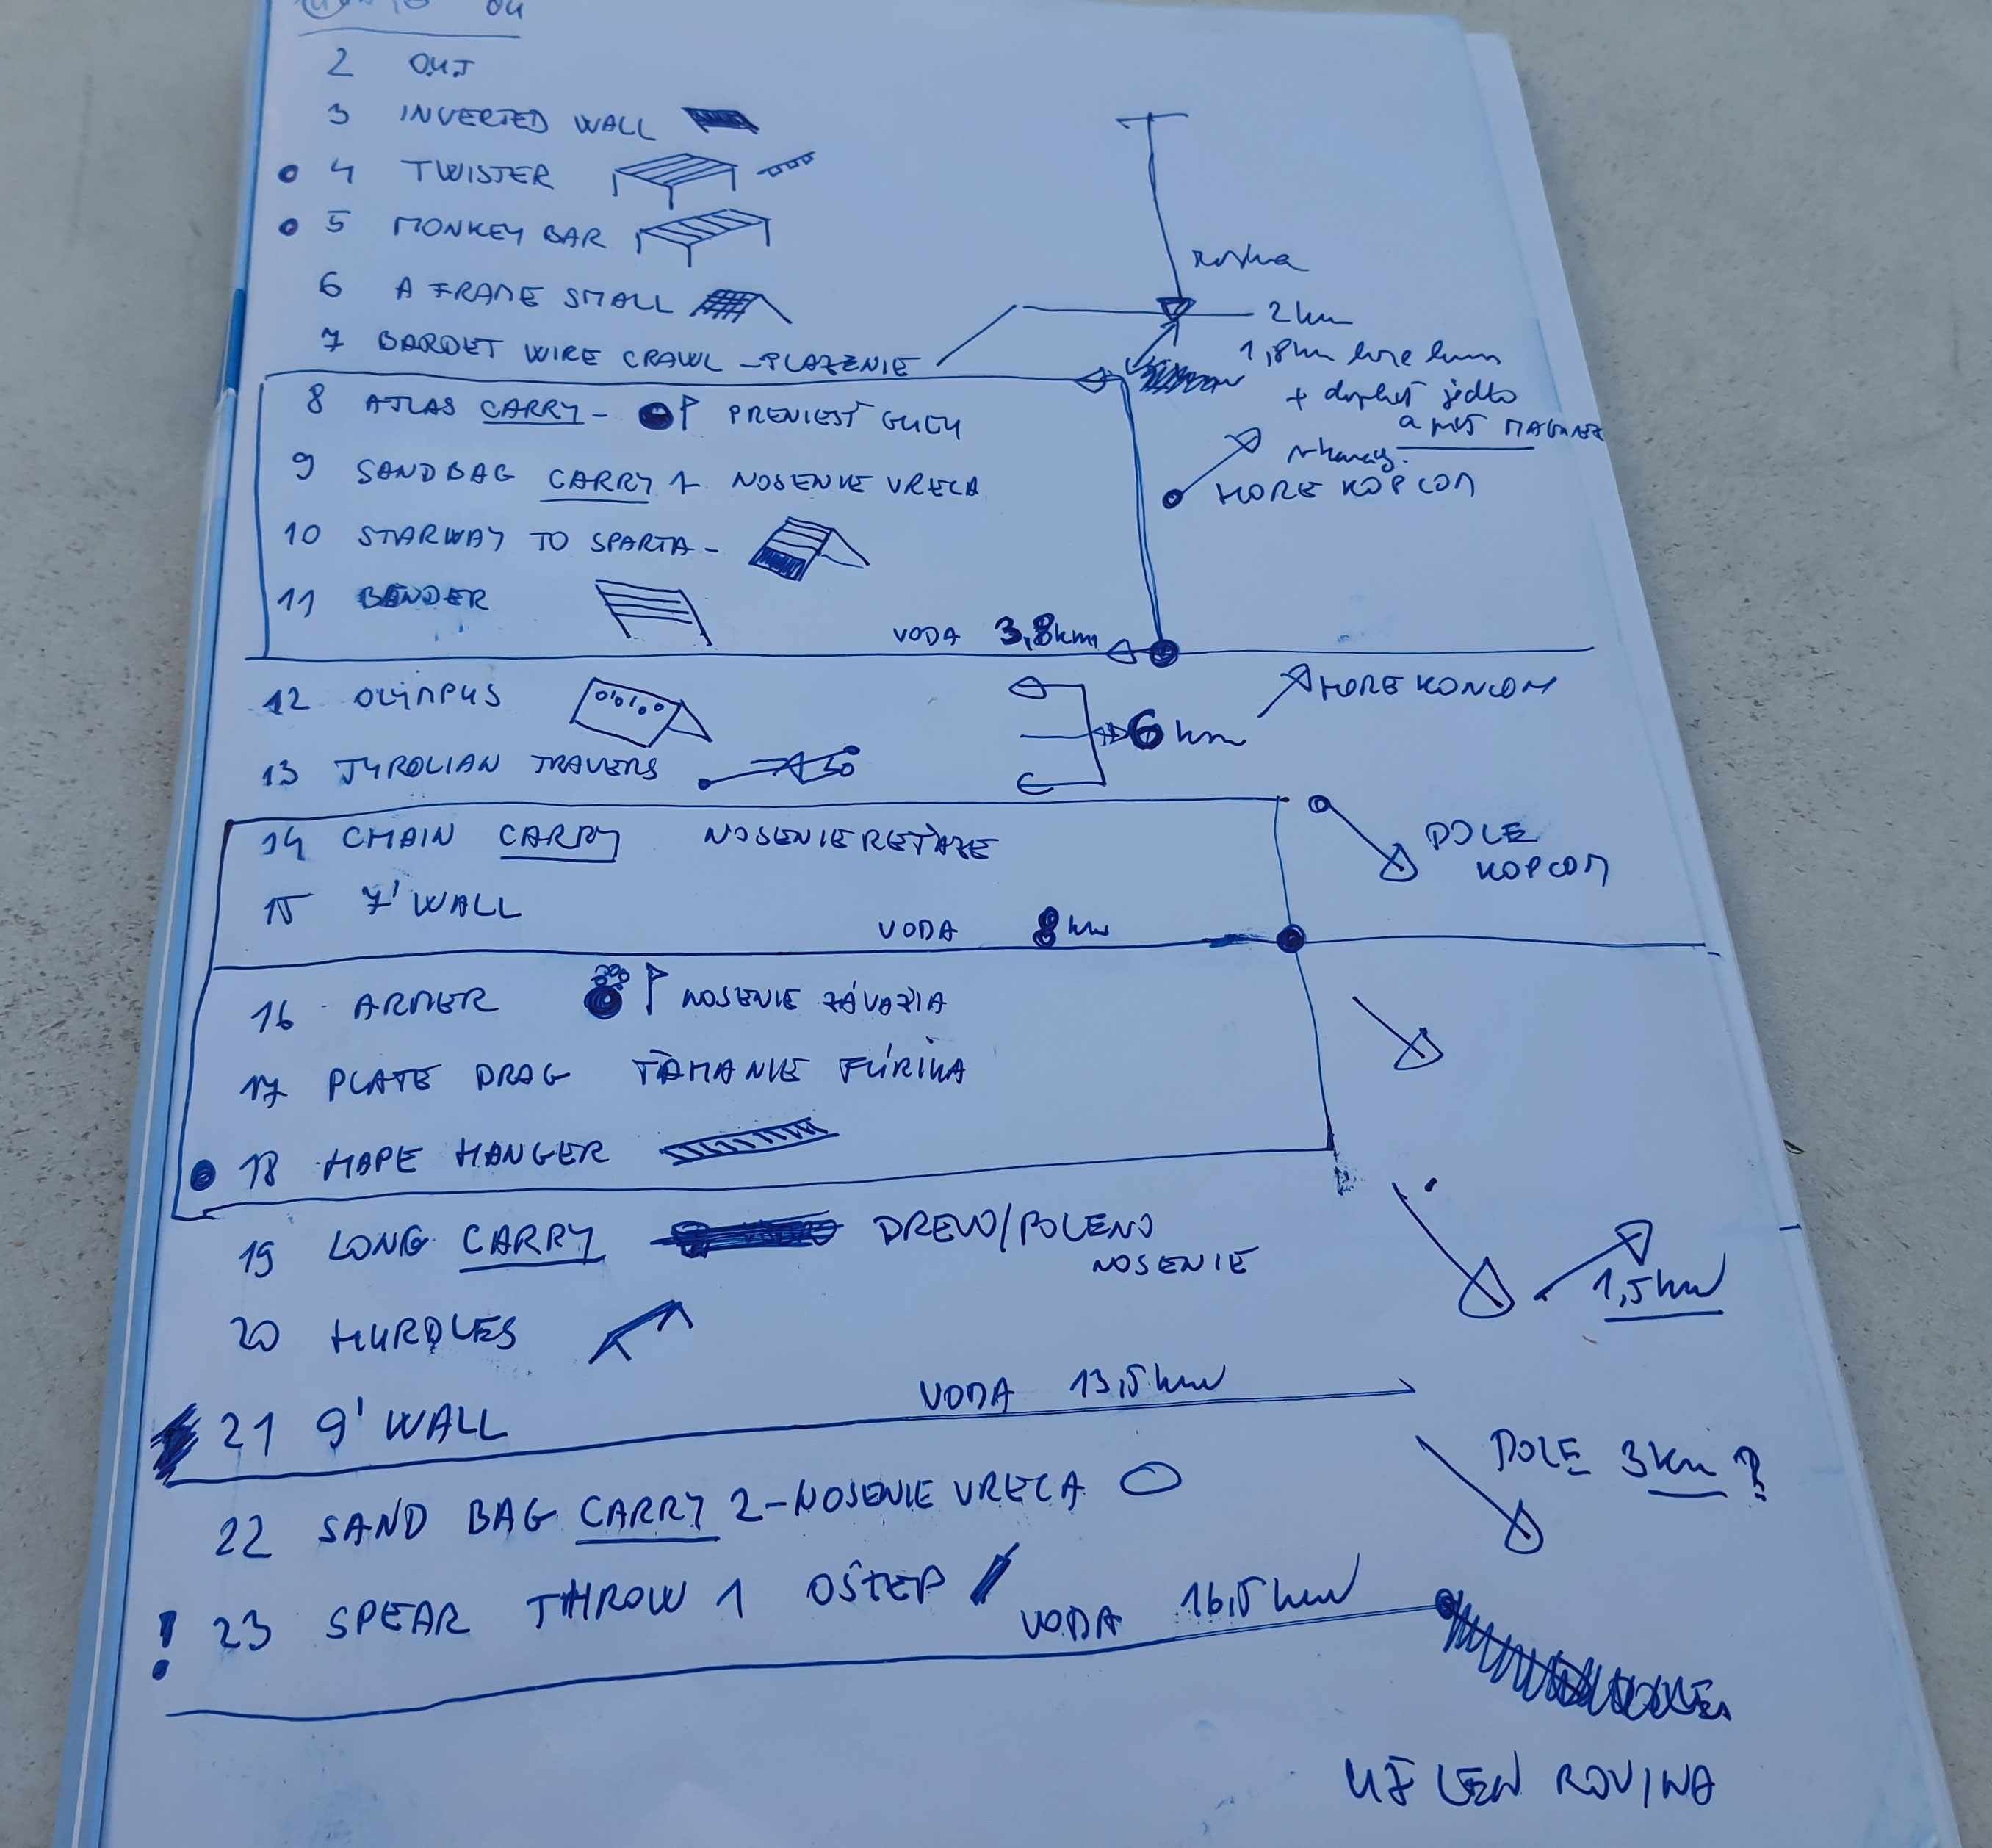 2 OUT
3 INVERTED WALL
4 TWISTER
5 MONKEY BAR
rovina
6 A FRAME SMALL
2 km
7 BARDET WIRE CRAWL - PLAZENIE
1,8 km
+ jedlo
8 ATLAS CARRY - PRENIESŤ GUĽU
a
9 SANDBAG CARRY 1 NOSENIE VRECA
HORE KOPCOM
10 STARWAY TO SPARTA -
11 BENDER
VODA 3,8 km
12 OLYMPUS
HORE KONCOM
6 km
13 TYROLIAN TRAVERS
14 CHAIN CARRY NOSENIE REŤAZE
DOLE
KOPCOM
15 7' WALL
VODA 8 km
16 ARMER NOSENIE ZÁVAŽIA
17 PLATE DRAG ŤAHANIE FÚRIKA
18 HAPE HANGER
19 LONG CARRY DREVO/POLENO
NOSENIE
1,5 km
20 HURDLES
VODA 13,5 km
21 9' WALL
DOLE 3 km ?
22 SAND BAG CARRY 2 - NOSENIE VRECA
! 23 SPEAR THROW 1 OŠTEP
VODA 16,5 km
UŽ LEN ROVINA